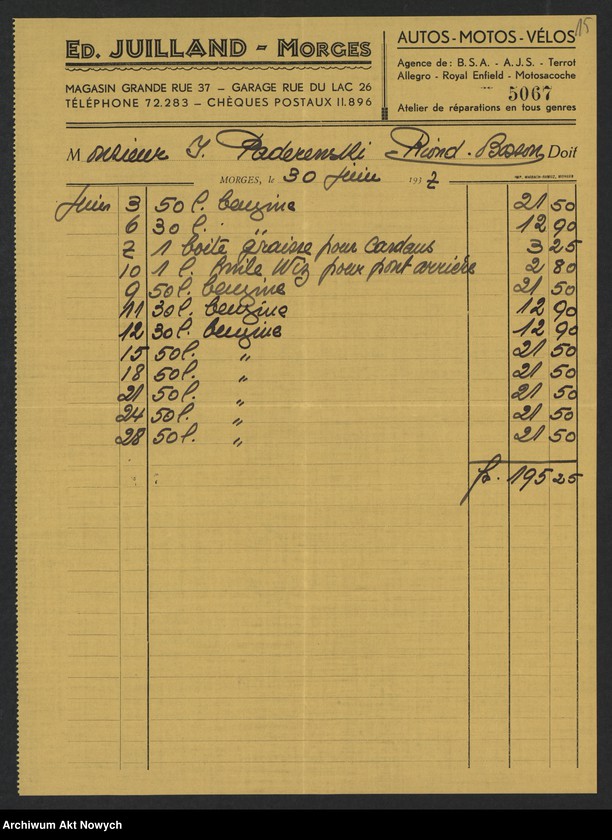 15
ED. JUILLAND - MORGES
AUTOS - MOTOS - VÉLOS
MAGASIN GRANDE RUE 37 — GARAGE RUE DU LAC 26
TÉLÉPHONE 72.283 — CHÈQUES POSTAUX II.896
Agence de : B. S. A. - A. J. S. - Terrot
Allegro - Royal Enfield - Motosacoche
5067
Atelier de réparations en tous genres
Monsieur I. Paderenski Riond-Bosson Doit
MORGES, le 30 juin 1937
Juin 3 50 l. benzine 21 50
6 30 l. " 12 90
7 1 boîte graisse pour cardans 3 25
10 1 l. huile pour pont arrière 2 80
9 50 l. benzine 21 50
11 30 l. benzine 12 90
12 30 l. benzine 12 90
15 50 l. " 21 50
18 50 l. " 21 50
21 50 l. " 21 50
24 50 l. " 21 50
28 50 l. " 21 50
fr. 195 25
Archiwum Akt Nowych